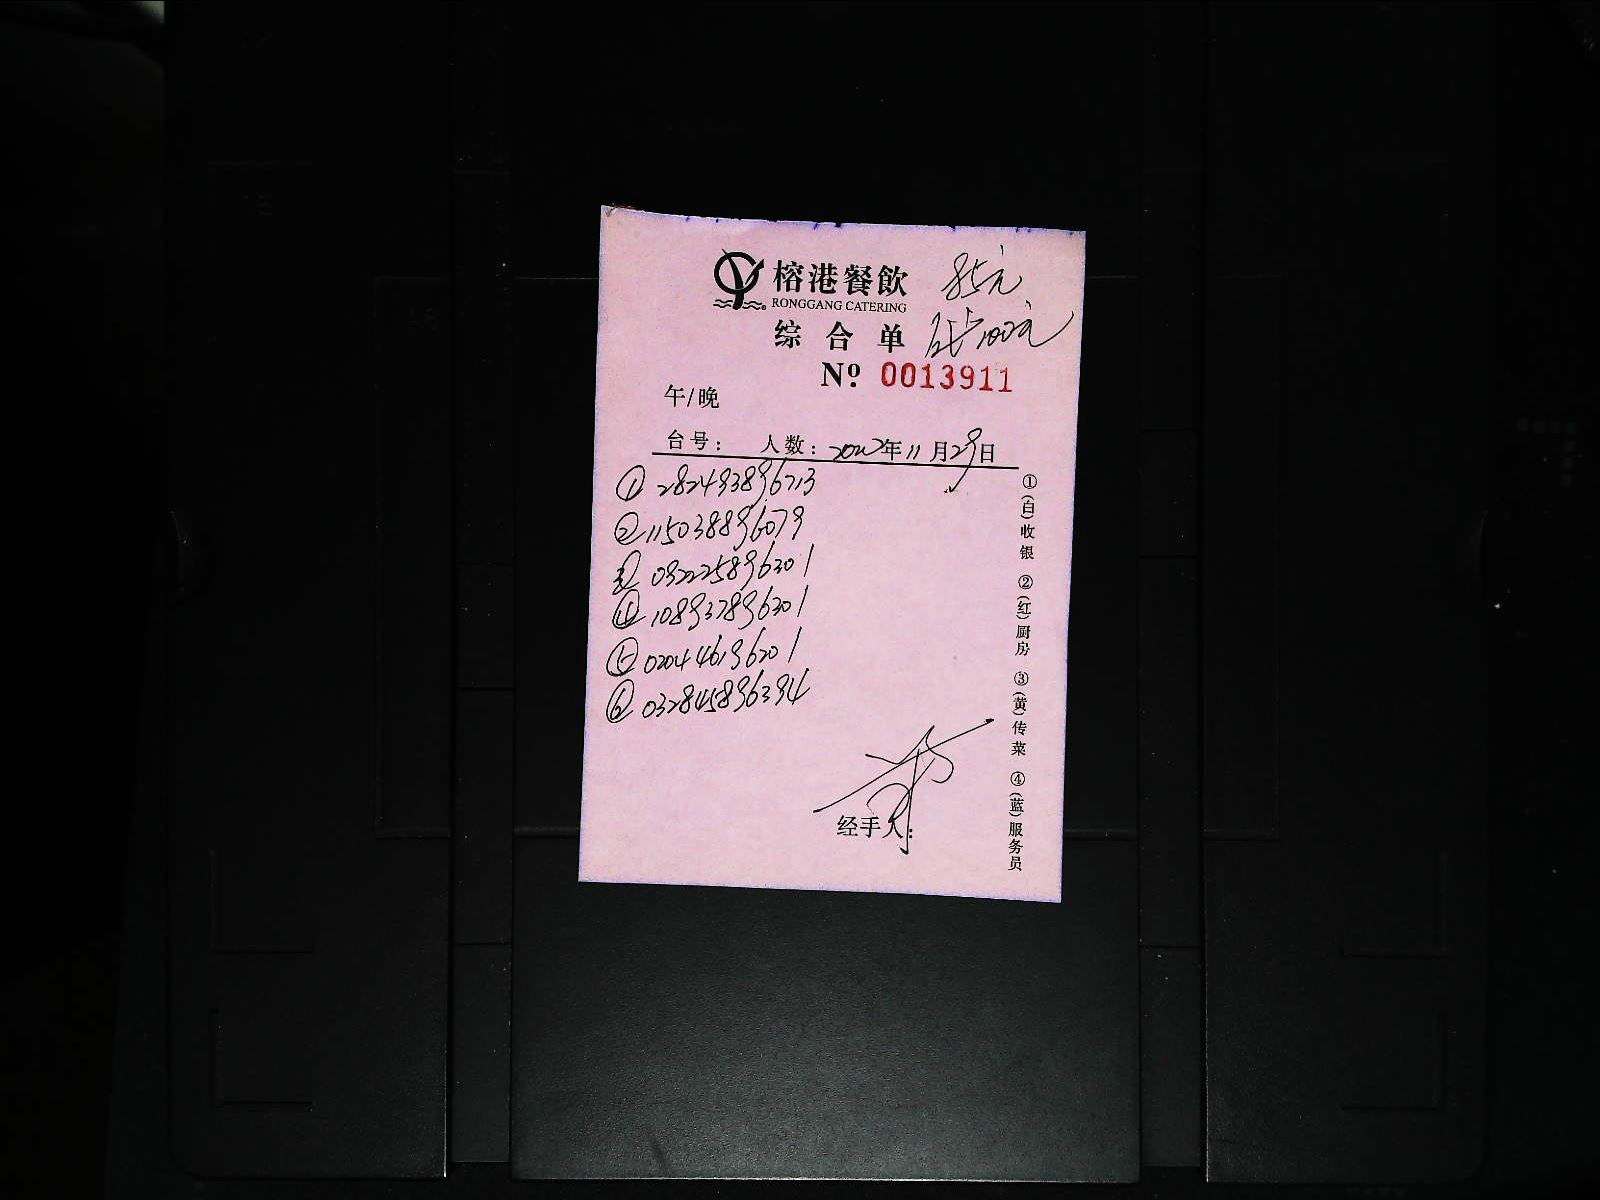 榕港餐飲 85元
RONGGANG CATERING
综合单 100元
Nº 0013911
午/晚
台号: 人数: 2022年11月29日
① 282493896713
② 115038896079
③ 092225896301
④ 108937896301
⑤ 020446196201
⑥ 032845896394
经手人:
①(白)收银 ②(红)厨房 ③(黄)传菜 ④(蓝)服务员